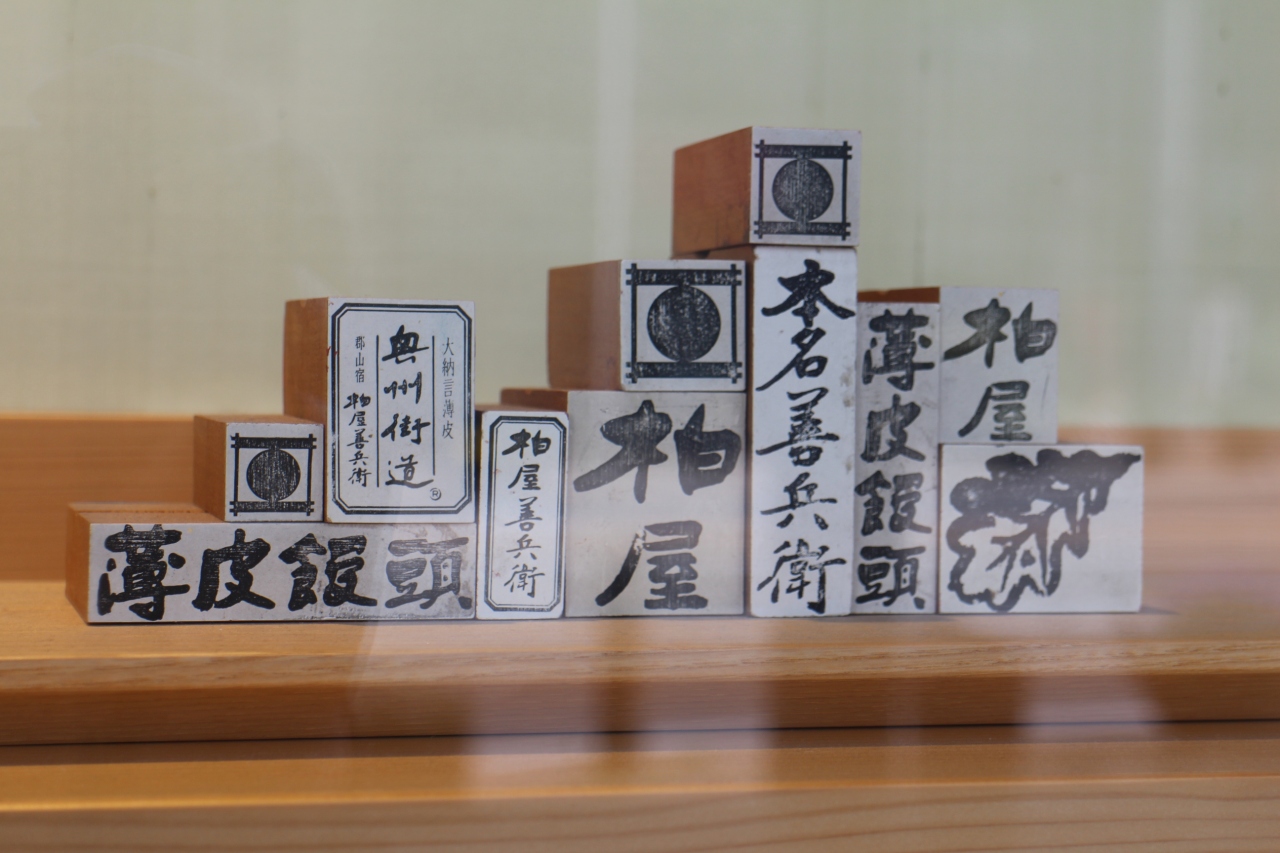 薄皮饅頭
大納言薄皮
奥州街道
郡山宿 柏屋善兵衛
R
柏屋善兵衛
柏屋
本名善兵衛
薄皮饅頭
柏屋